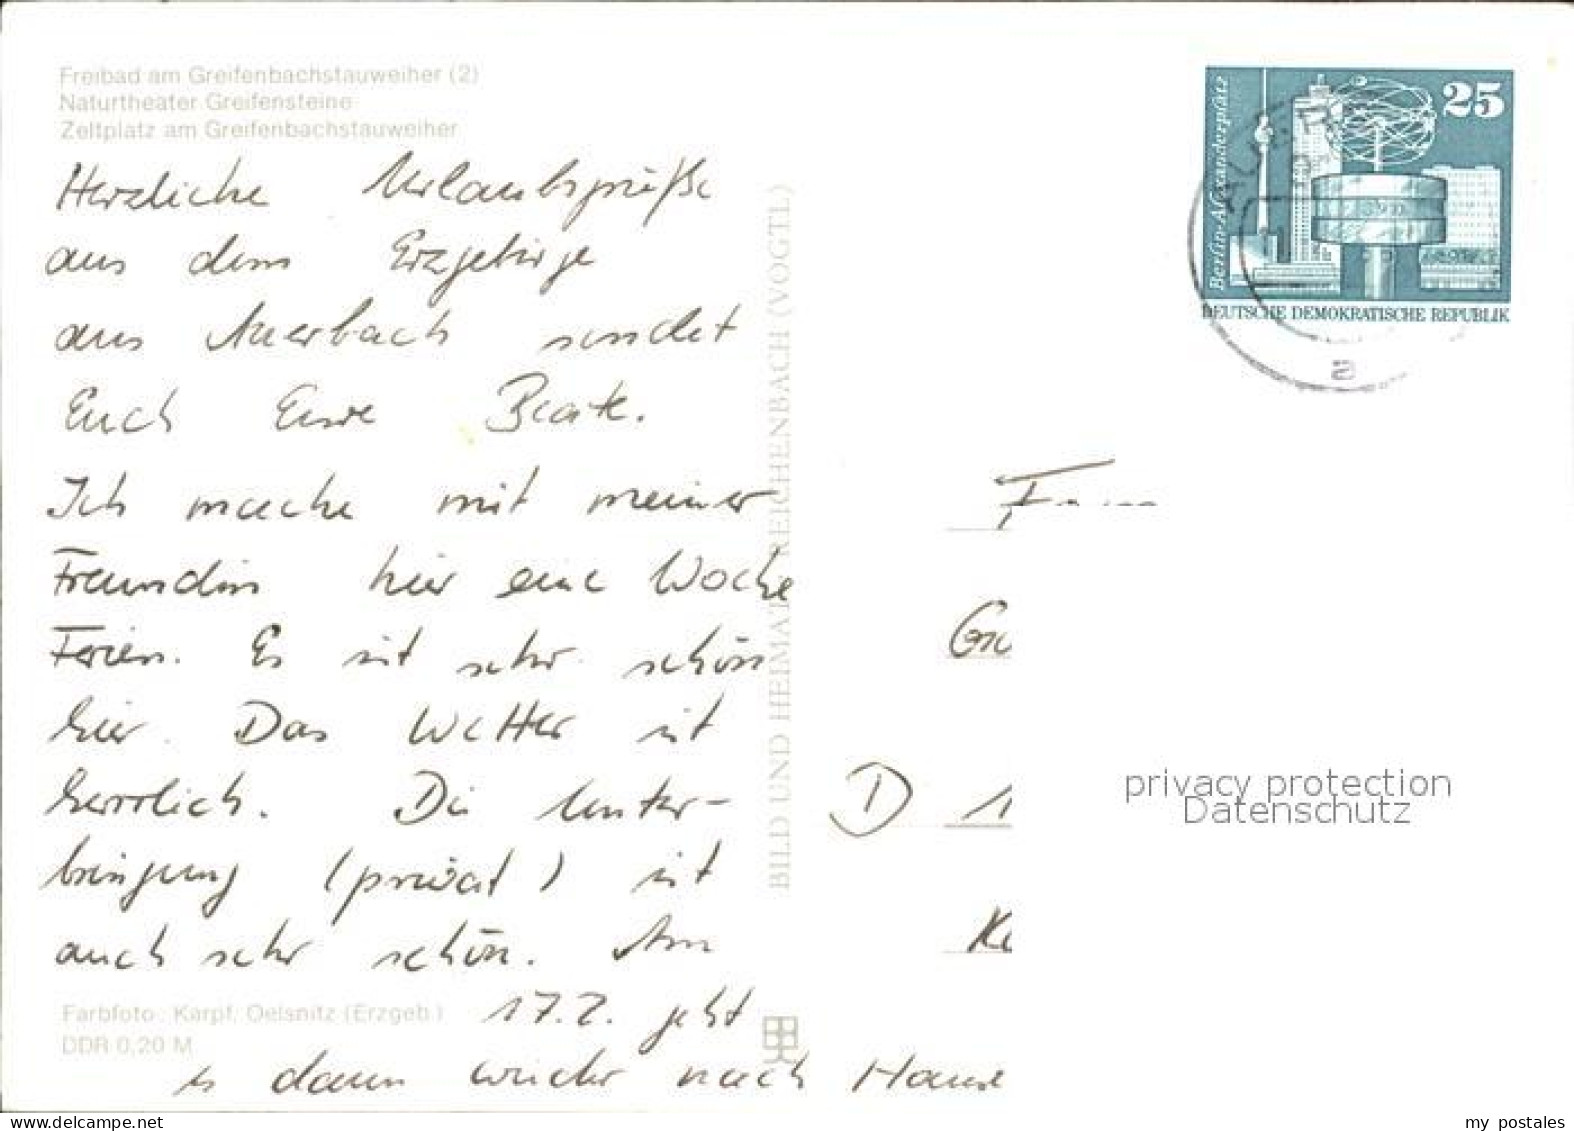 Freibad am Greifenbachstauweiher (2)
Naturtheater Greifensteine
Zeltplatz am Greifenbachstauweiher
Herzliche Urlaubsgrüße
aus dem Erzgebirge
aus Auerbach sendet
Euch Eure Beate.
Ich mache mit meiner
Freundin hier eine Woche
Ferien. Es ist sehr schön
hier. Das Wetter ist
herrlich. Die Unter-
bringung (privat) ist
auch sehr schön. Am
17.7. geht
es dann wieder nach Hause
Farbfoto: Karpf, Oelsnitz (Erzgeb.)
DDR 0,20 M
BILD UND HEIMAT REICHENBACH (VOGTL)
Berlin-Alexanderplatz
25
DEUTSCHE DEMOKRATISCHE REPUBLIK
a
D 1
privacy protection
Datenschutz
my postales
www.delcampe.net